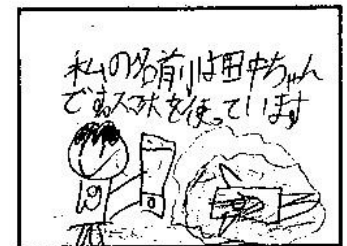 私の名前は田中ちゃん
ですスマホを使っています